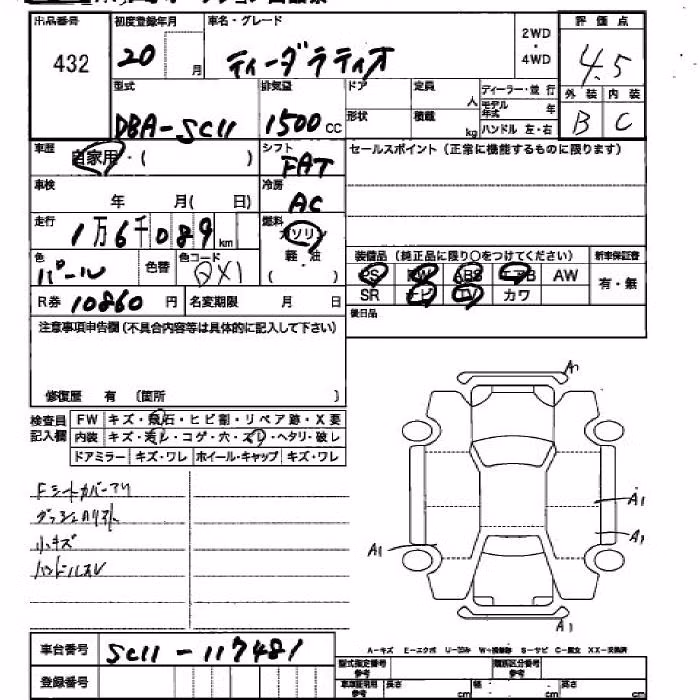 出品番号 初度登録年月 車名・グレード 2WD・4WD 評価点
432 20 月 ティーダラティオ 4.5
型式 排気量 ドア 定員 人 ディーラー・並行 外装 内装
形状 積載 kg モデル年式 年 B C
DBA-SC11 1500 CC ハンドル 左・右
車歴 自家用・( ) シフト FAT セールスポイント(正常に機能するものに限ります)
車検 年 月( 日) 冷房 AC
走行 1万6千089 km 燃料 ガソリン
色 パール 色替 色コード QX1 軽・油 ( ) 装備品(純正品に限り○をつけてください) 新車保証書
PS PW ABS エアB AW 有・無
R券 10860 円 名変期限 月 日 SR ナビ TV カワ
注意事項申告欄(不具合内容等は具体的に記入して下さい) 後日品
修復歴 有 (箇所 )
検査員記入欄 FW キズ・飛石・ヒビ割・リペア跡・X要
内装 キズ・汚レ・コゲ・穴・スレ・ヘタリ・破レ
ドアミラー キズ・ワレ ホイール・キャップ キズ・ワレ
Fシートカバーアリ
小キズ
ハンドルスレ
A1
A1
A1
A1
A1
車台番号 SC11-117481
A-キズ E-エクボ U-凹み W-補修跡 S-サビ C-腐食 XX-交換済
登録番号 型式指定番号 参考 類別区分番号 参考
車車証明用 参考 長さ cm 幅 cm 高さ cm